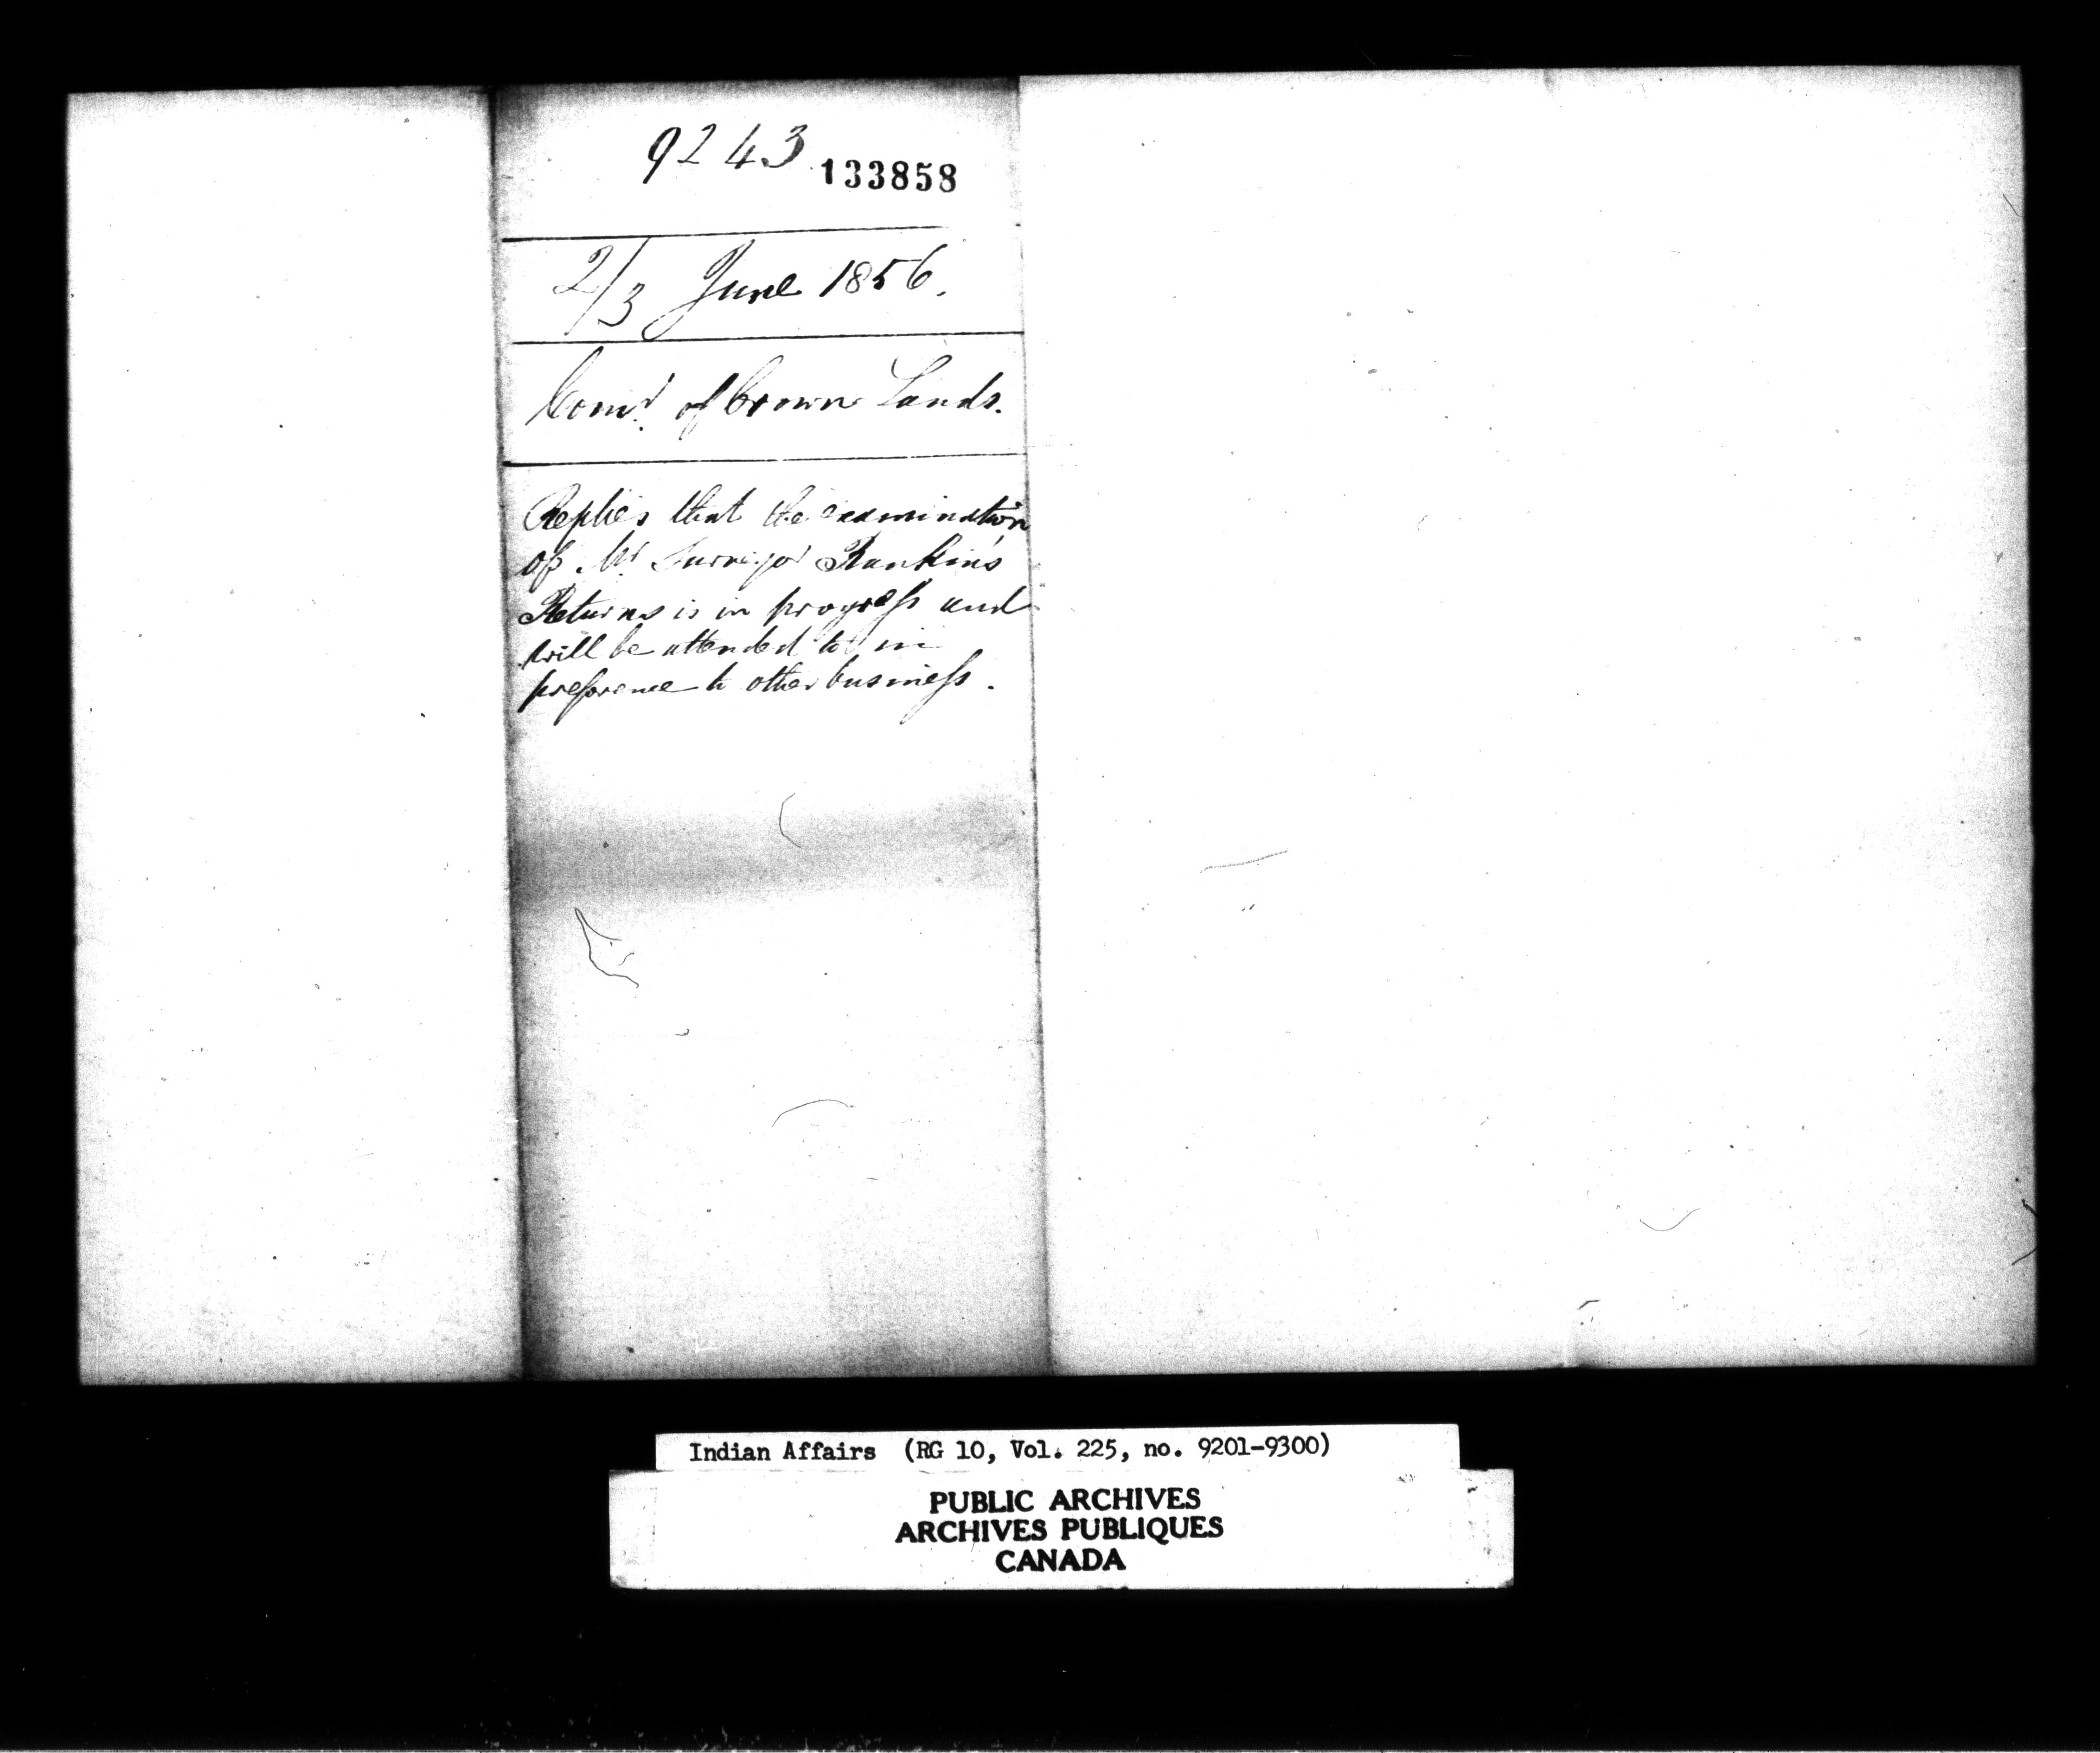 9243
133858
2/3 June 1856.
Comr. of Crown Lands.
Replies that the examination
of Mr Surveyor Rankin's
Returns is in progress and
will be attended to in
preference to other business.
Indian Affairs (RG 10, Vol. 225, no. 9201-9300)
PUBLIC ARCHIVES
ARCHIVES PUBLIQUES
CANADA